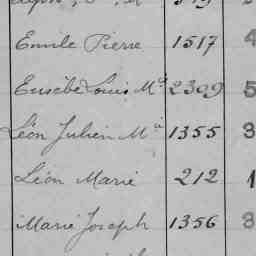 Emile Pierre 1517 4
Eusèbe Louis Mie 2309 5
Léon Julien Mie 1355 3
Léon Marie 212 1
Marie Joseph 1356 3